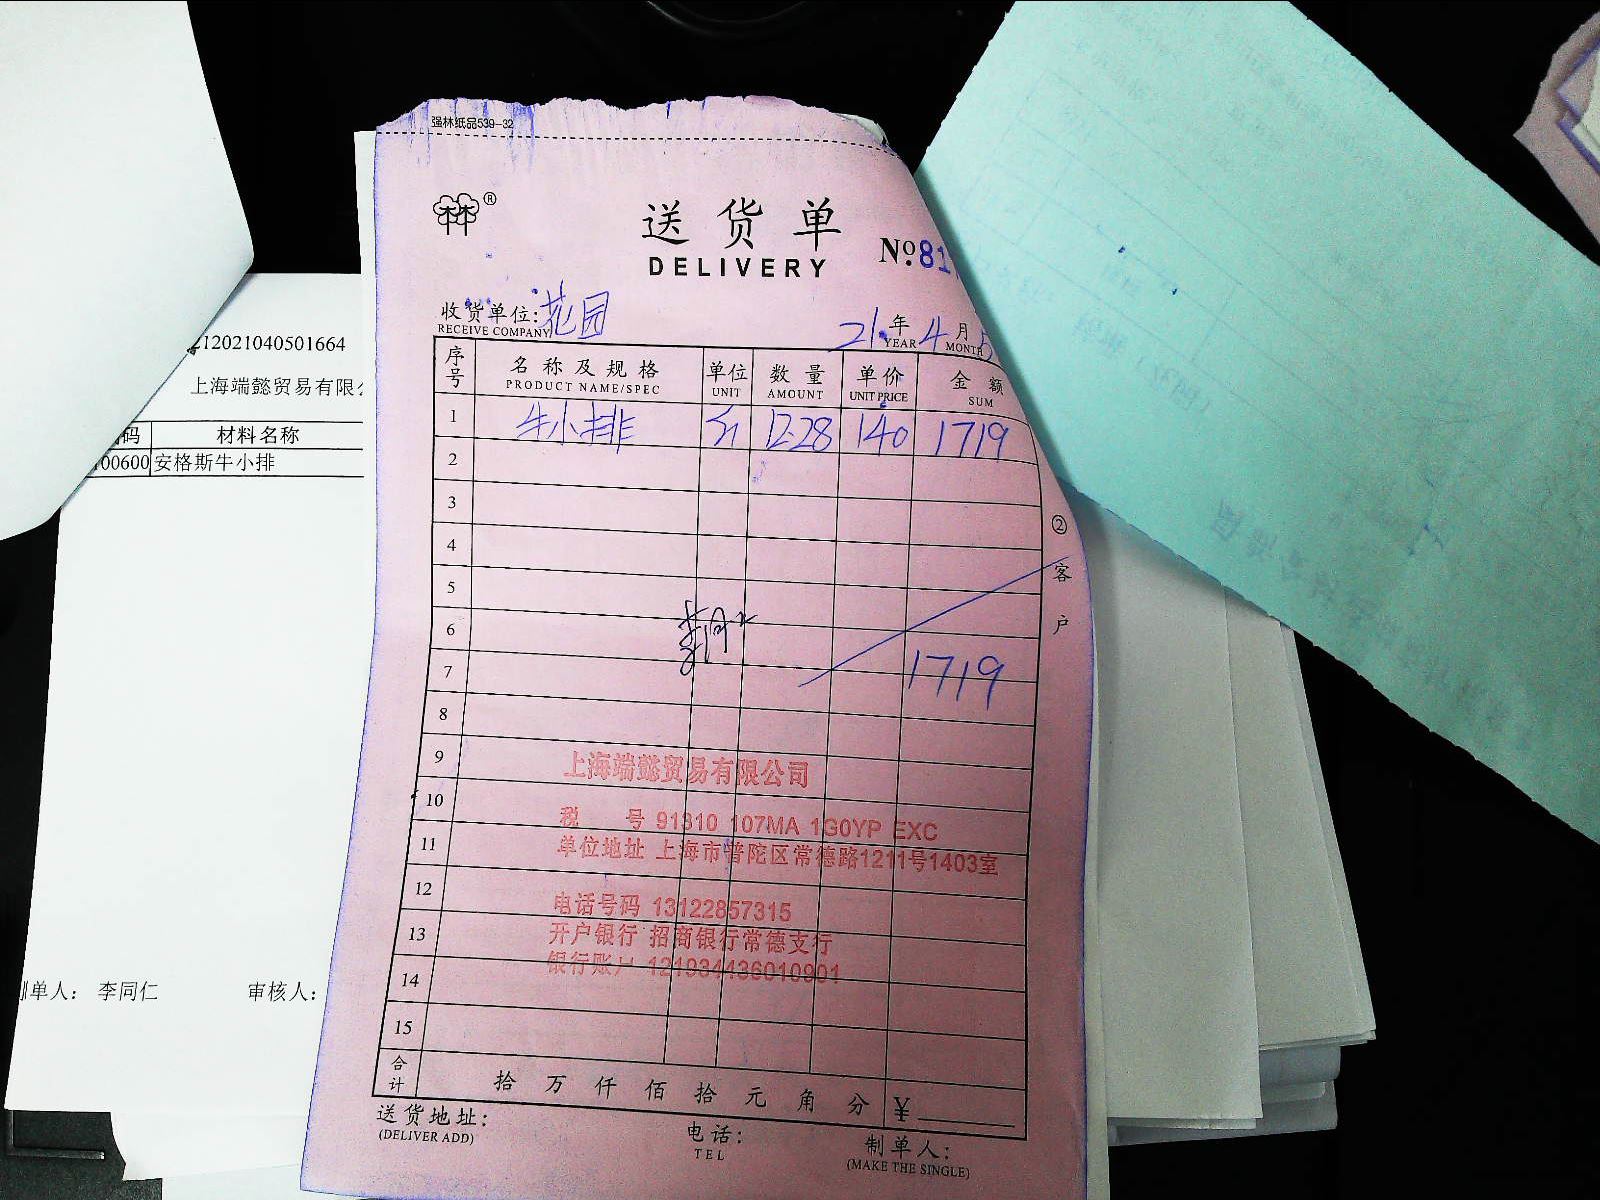 强林纸品539-32
林林®
送货单
DELIVERY
№81
收货单位:花园
RECEIVE COMPANY
21年4月5
YEAR MONTH
序号 名称及规格 单位 数量 单价 金额
PRODUCT NAME/SPEC UNIT AMOUNT UNIT PRICE SUM
1 牛小排 12.28 140 1719
2
3
4
5
6
7 1719
8
9
10
11
12
13
14
15
②客户
上海端懿贸易有限公司
税 号 91310 107MA 1G0YP EXC
单位地址 上海市普陀区常德路1211号1403室
电话号码 13122857315
开户银行 招商银行常德支行
银行账户 121934436010901
合计 拾万仟佰拾元角分 ¥
送货地址:
(DELIVER ADD)
电话:
TEL
制单人:
(MAKE THE SINGLE)
212021040501664
上海端懿贸易有限
码 材料名称
00600 安格斯牛小排
制单人: 李同仁 审核人: